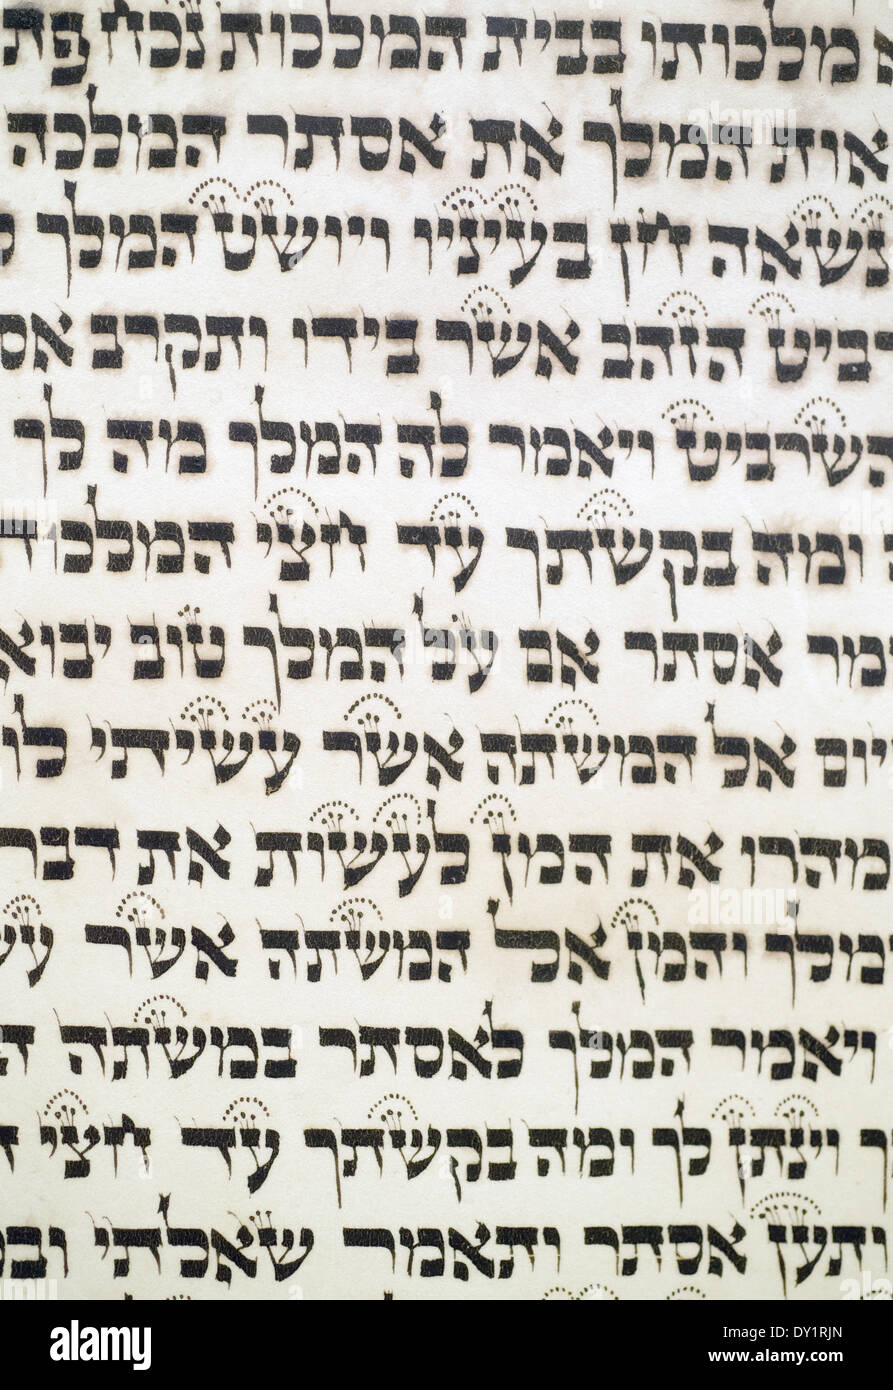 מלכותו בבית המלכות נכח פת
אות המלך את אסתר המלכה
נשאה חן בעיניו ויושט המלך ל
רביט הזהב אשר בידו ותקרב אס
השרביט ויאמר לה המלך מה לך
ומה בקשתך עד חצי המלכות
מר אסתר אם על המלך טוב יבוא
יום אל המשתה אשר עשיתי לו
מהרו את המן לעשות את דבר
מלך והמן אל המשתה אשר עש
ויאמר המלך לאסתר במשתה ה
ך וינתן לך ומה בקשתך עד חצי ה
ותען אסתר ותאמר שאלתי ובק
alamy
Image ID: DY1RJN
www.alamy.com